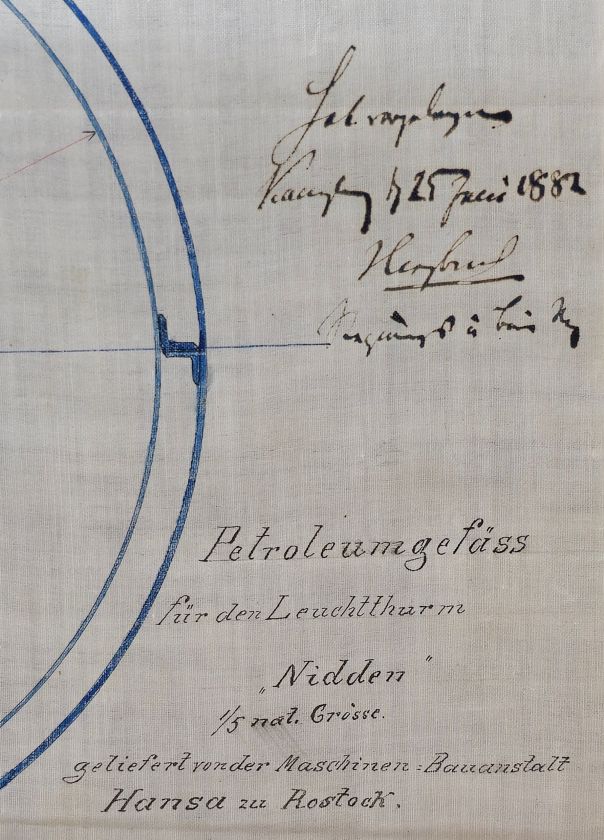 Hat vorgelegen
d. 25 Juni 1882
Herzbruch
Regierungs u Bau
Petroleumgefäss
für den Leuchtthurm
„Nidden"
1/5 nat. Grösse.
geliefert von der Maschinen=Bauanstalt
Hansa zu Rostock.